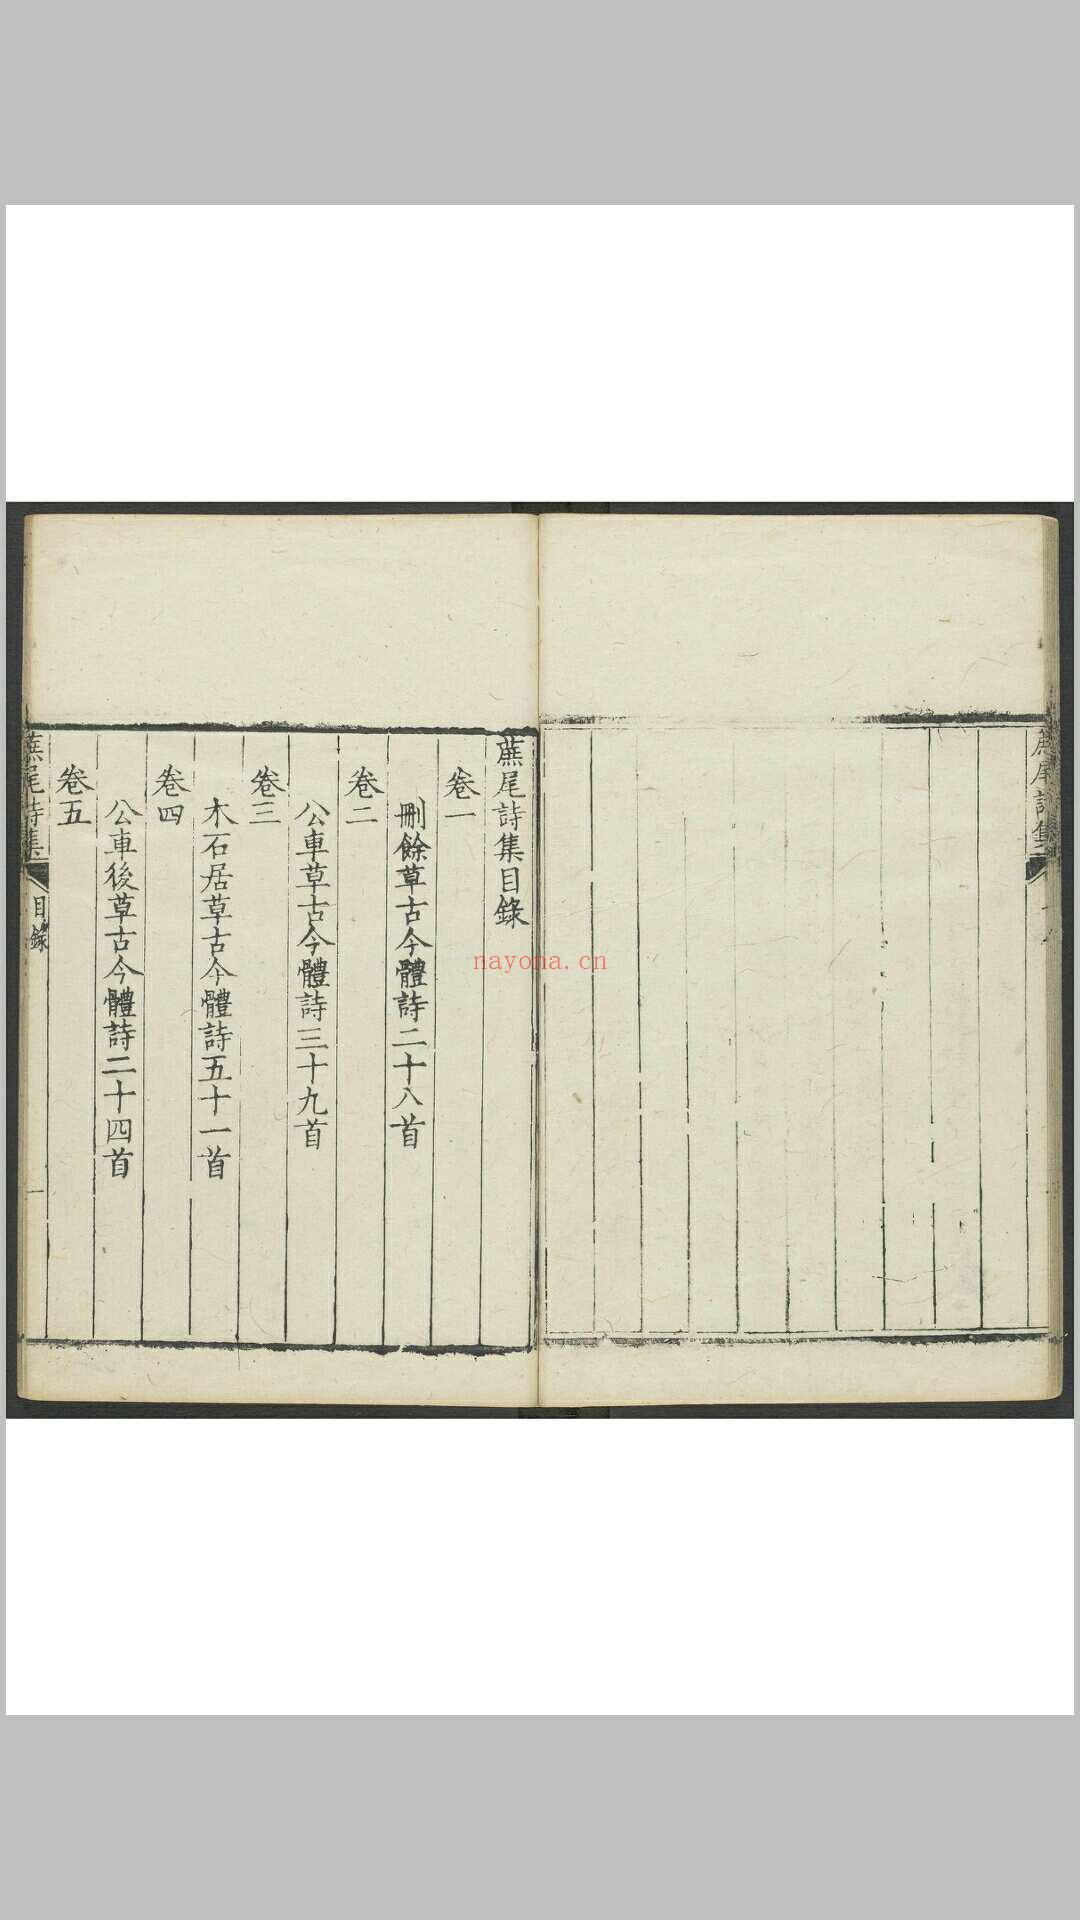 蔗尾詩集
蔗尾詩集目錄
卷一
刪餘草古今體詩二十八首
卷二
公車草古今體詩三十九首
卷三
木石居草古今體詩五十一首
卷四
公車後草古今體詩二十四首
卷五
蔗尾詩集
目錄
一
nayona.cn